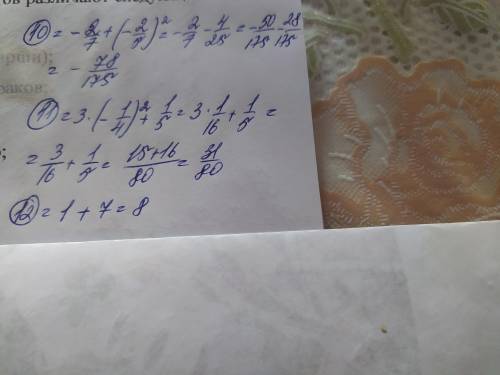 ов различают следу
⑩ = - 2/7 + (- 2/5)² = - 2/7 - 4/25 = - 50/175 - 28/175
= - 78/175
⑪ = 3 · (- 1/4)² + 1/5 = 3 · 1/16 + 1/5 =
= 3/16 + 1/5 = 15+16/80 = 31/80
⑫ = 1 + 7 = 8